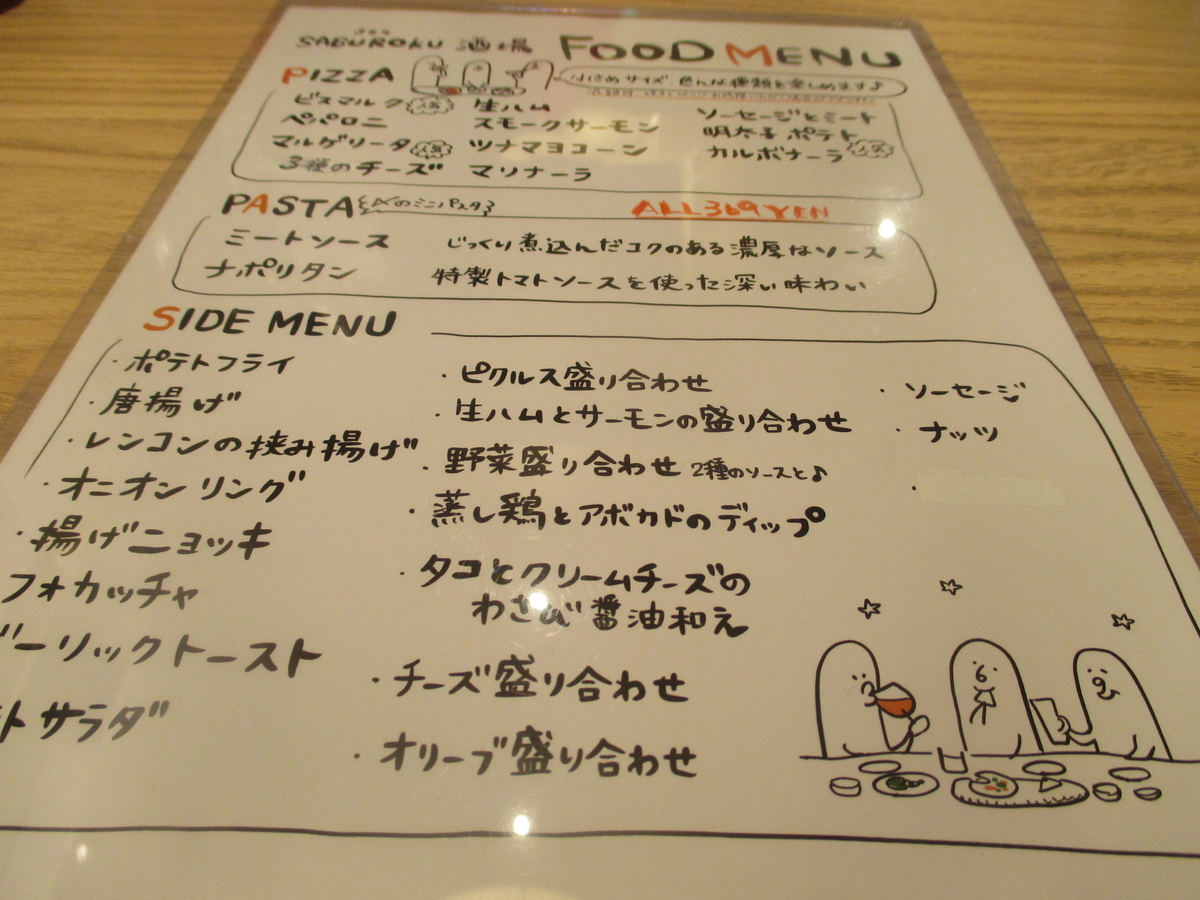 SABUROKU 酒場 FOOD MENU
PIZZA
小さめサイズ 色んな種類を楽しめます♪
ビスマルク 人気
ペパロニ
マルゲリータ 人気
3種のチーズ
生ハム
スモークサーモン
ツナマヨコーン
マリナーラ
ソーセージとミート
明太子ポテト
カルボナーラ 人気
PASTA 〆のミニパスタ
ALL 369 YEN
ミートソース じっくり煮込んだコクのある濃厚なソース
ナポリタン 特製トマトソースを使った深い味わい
SIDE MENU
・ポテトフライ
・唐揚げ
・レンコンの挟み揚げ
・オニオンリング
・揚げニョッキ
フォカッチャ
ガーリックトースト
トサラダ
・ピクルス盛り合わせ
・生ハムとサーモンの盛り合わせ
・野菜盛り合わせ 2種のソースと♪
・蒸し鶏とアボカドのディップ
・タコとクリームチーズの
わさび醤油和え
・チーズ盛り合わせ
・オリーブ盛り合わせ
・ソーセージ
・ナッツ
・